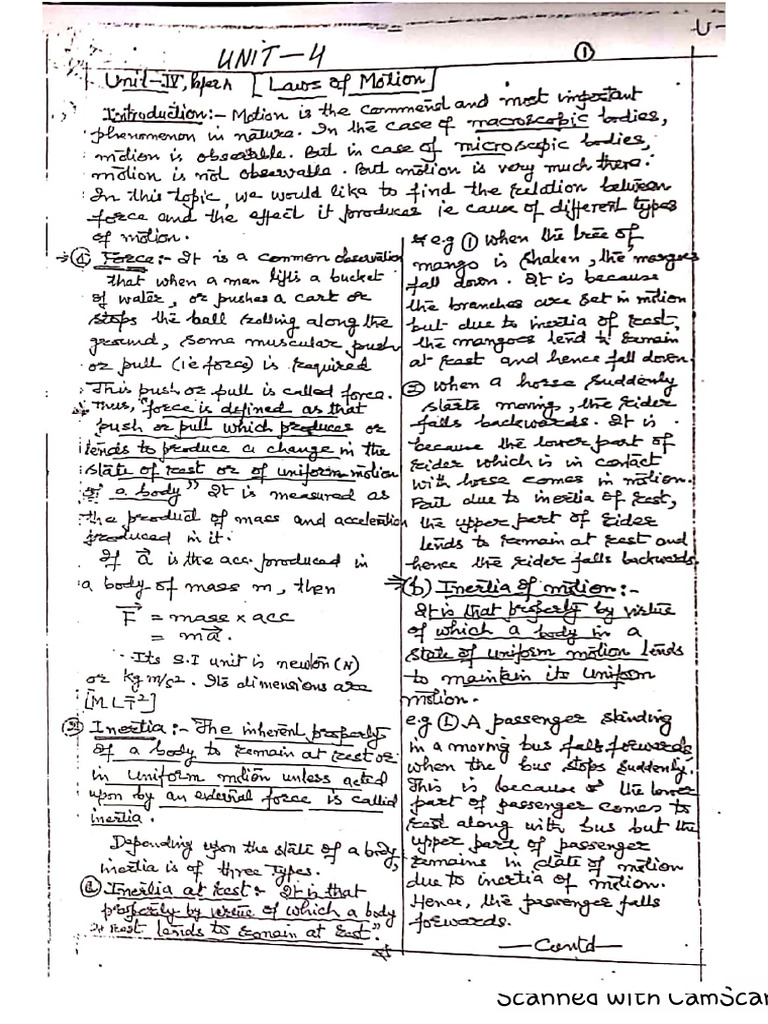 U-
UNIT-4
①
Unit-IV, [Laws of Motion]
Introduction:- Motion is the commenst and most important
phenomenon in nature. In the case of macroscopic bodies,
motion is obserable. But in case of microscopic bodies,
motion is not observable. But motion is very much there.
In this topic, we would like to find the relation between
force and the effect it produces ie cause of different types
of motion.
① Force:- It is a common observation
that when a man lifts a bucket
of water, or pushes a cart or
stops the ball rolling along the
ground, some muscular push
or pull (ie force) is required
This push or pull is called force.
Thus, "force is defined as that
push or pull which produces or
tends to produce a change in the
state of rest or of uniform motion
of a body" It is measured as
the product of mass and acceleration
produced in it.
If a⃗ is the acc. produced in
a body of mass m, then
F⃗ = mass x acc
= ma⃗.
Its S.I unit is newton (N)
or kg m/s². Its dimensions are
[MLT⁻²]
② Inertia:- The inherent property
of a body to remain at rest or
in uniform motion unless acted
upon by an external force is called
inertia.
Depending upon the state of a body,
inertia is of three types.
ⓐ Inertia at rest:- It is that
property by virtue of which a body
at rest tends to remain at rest".
e.g ① when the tree of
mango is shaken, the mangoes
fall down. It is because
the branches are set in motion
but due to inertia of rest,
the mangoes tend to remain
at rest and hence fall down.
② when a horse suddenly
starts moving, the rider
falls backwards. It is
because the lower part of
rider which is in contact
with horse comes in motion.
But due to inertia of rest,
the upper part of rider
tends to remain at rest and
hence the rider falls backwards.
(b) Inertia of motion:-
It is that property by virtue
of which a body in a
state of uniform motion tends
to maintain its uniform
motion.
e.g ① A passenger standing
in a moving bus falls forwards
when the bus stops suddenly.
This is because the lower
part of passenger comes to
rest along with bus but the
upper part of passenger
remains in state of motion
due to inertia of motion.
Hence, the passenger falls
forwards.
—Contd—
Scanned with CamScan